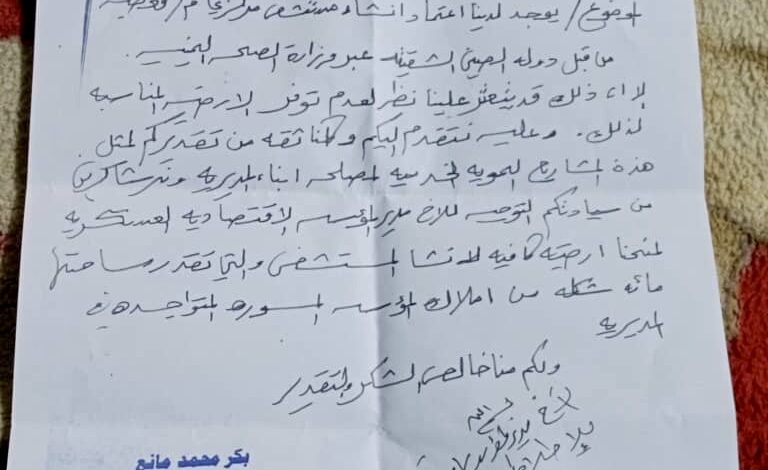 الموضوع / يوجد لدينا اعتماد انشاء مستشفى مركزي عام /
من قبل دوله الصين الشقيقه عبر وزارة الصحه اليمنيه
لا ان ذلك قد يتعثر علينا نظر لعدم توفر الارضيه المناسبه
لذلك. وعليه نتقدم اليكم وكلنا ثقه من تقديركم لمثل
هذة المشاريع التمويه الخدميه لمصلحه ابناء المديريه ونكن شاكرين
من سيادتكم التوجيه للاخ مدير المؤسسه الاقتصاديه العسكريه
لمنحنا ارضيه كافيه لانشا المستشفى والتي تقدر مساحتها
مائه شكله من املاك المؤسسه المسوره المتواجده في
المديريه
ولكم منا خالص الشكر والتقدير
الشيخ
بكر محمد مانع